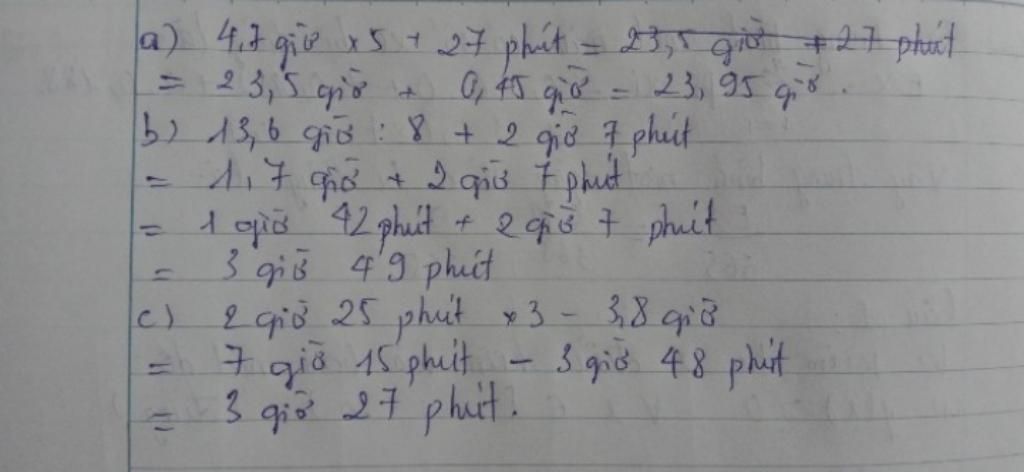 a) 4,7 giờ × 5 + 27 phút = 23,5 giờ + 27 phút
= 23,5 giờ + 0,45 giờ = 23,95 giờ.
b) 13,6 giờ : 8 + 2 giờ 7 phút
= 1,7 giờ + 2 giờ 7 phút
= 1 giờ 42 phút + 2 giờ 7 phút
= 3 giờ 49 phút
c) 2 giờ 25 phút × 3 - 3,8 giờ
= 7 giờ 15 phút - 3 giờ 48 phút
= 3 giờ 27 phút.